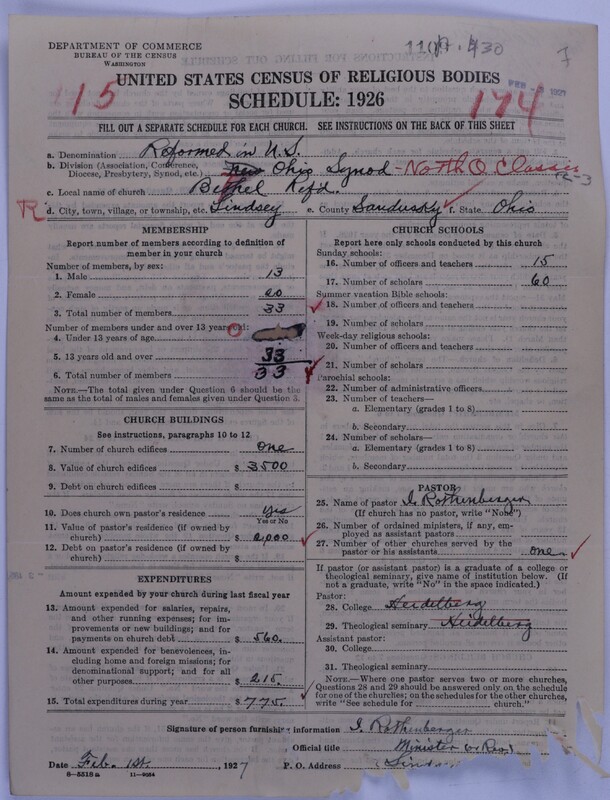 DEPARTMENT OF COMMERCE
BUREAU OF THE CENSUS
WASHINGTON
115
174
UNITED STATES CENSUS OF RELIGIOUS BODIES
SCHEDULE: 1926
FILL OUT A SEPARATE SCHEDULE FOR EACH CHURCH. SEE INSTRUCTIONS ON THE BACK OF THIS SHEET
a. Denomination Reformed in U.S.
b. Division (Association, Conference, Diocese, Presbytery, Synod, etc.) Ohio Synod - North O. Classis
R-3
c. Local name of church Bethel Ref'd.
R
d. City, town, village, or township, etc. Lindsey e. County Sandusky f. State Ohio
MEMBERSHIP
Report number of members according to definition of member in your church
Number of members, by sex:
1. Male 13
2. Female 20
3. Total number of members 33
Number of members under and over 13 years
4. Under 13 years of age
5. 13 years old and over 33
6. Total number of members 33
NOTE.—The total given under Question 6 should be the same as the total of males and females given under Question 3.
CHURCH BUILDINGS
See instructions, paragraphs 10 to 12
7. Number of church edifices one
8. Value of church edifices $ 3500
9. Debt on church edifices $
10. Does church own pastor's residence yes
Yes or No
11. Value of pastor's residence (if owned by church) $ 2,000
12. Debt on pastor's residence (if owned by church) $
EXPENDITURES
Amount expended by your church during last fiscal year
13. Amount expended for salaries, repairs, and other running expenses; for improvements or new buildings; and for payments on church debt $ 560.
14. Amount expended for benevolences, including home and foreign missions; for denominational support; and for all other purposes $ 215.
15. Total expenditures during year $ 775.
CHURCH SCHOOLS
Report here only schools conducted by this church
Sunday schools:
16. Number of officers and teachers 15
17. Number of scholars 60
Summer vacation Bible schools:
18. Number of officers and teachers
19. Number of scholars
Week-day religious schools:
20. Number of officers and teachers
21. Number of scholars
Parochial schools:
22. Number of administrative officers
23. Number of teachers—
a. Elementary (grades 1 to 8)
b. Secondary
24. Number of scholars—
a. Elementary (grades 1 to 8)
b. Secondary
PASTOR
25. Name of pastor I. Rothenberger
(If church has no pastor, write "None")
26. Number of ordained ministers, if any, employed as assistant pastors
27. Number of other churches served by the pastor or his assistants one
If pastor (or assistant pastor) is a graduate of a college or theological seminary, give name of institution below. (If not a graduate, write "No" in the space indicated.)
Pastor:
28. College Heidelberg
29. Theological seminary Heidelberg
Assistant pastor:
30. College
31. Theological seminary
NOTE.—Where one pastor serves two or more churches, Questions 28 and 29 should be answered only on the schedule for one of the churches; on the schedules for the other churches, write "See schedule for church."
Signature of person furnishing information I. Rothenberger
Official title Minister
Date Feb. 1st, 1927 P. O. Address Linds
8-5518 a 11-9084